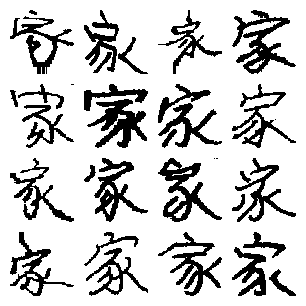 家家家家
家家家家
家家家家
家家家家